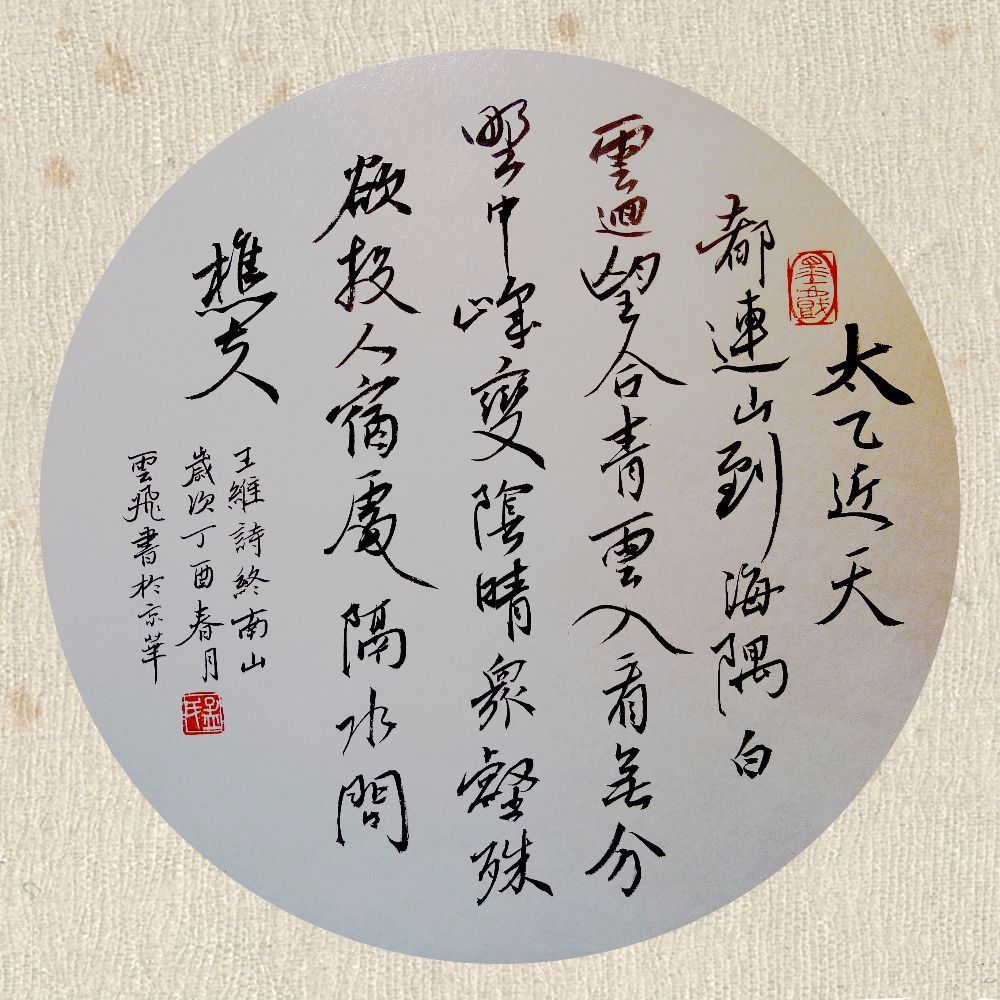 太乙近天
都連山到海隅白
雲迴望合青雲入看無分
野中峰變陰晴眾壑殊
欲投人宿處隔水問
樵夫
王維詩終南山
歲次丁酉春月
雲飛書於京華
墨戲